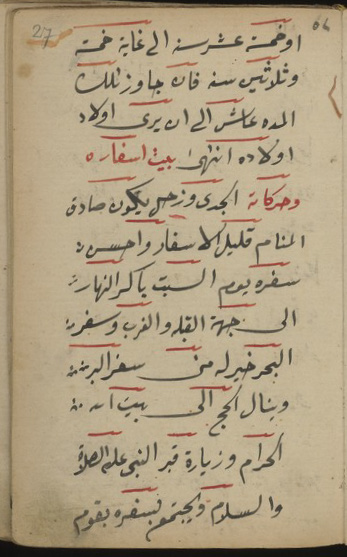 27
٥٤
او خمسة عشر سنه الى غاية خمسة
وثلاثين سنه فان جاوز تلك
المده عاش الى ان يرى اولاد
اولاده انتهى بيت اسفاره
وحركاته الجدى وزحل يكون صادق
المنام قليل الاسفار واحسن
سفره يوم السبت باكر النهار
الى جهة القبله والغرب وسفر
البحر خير له من سفر البر
وينال الحج الى بيت الله
الحرام وزيارة قبر النبى عليه الصلاة
والسلام ويجتمع بسفره بقوم